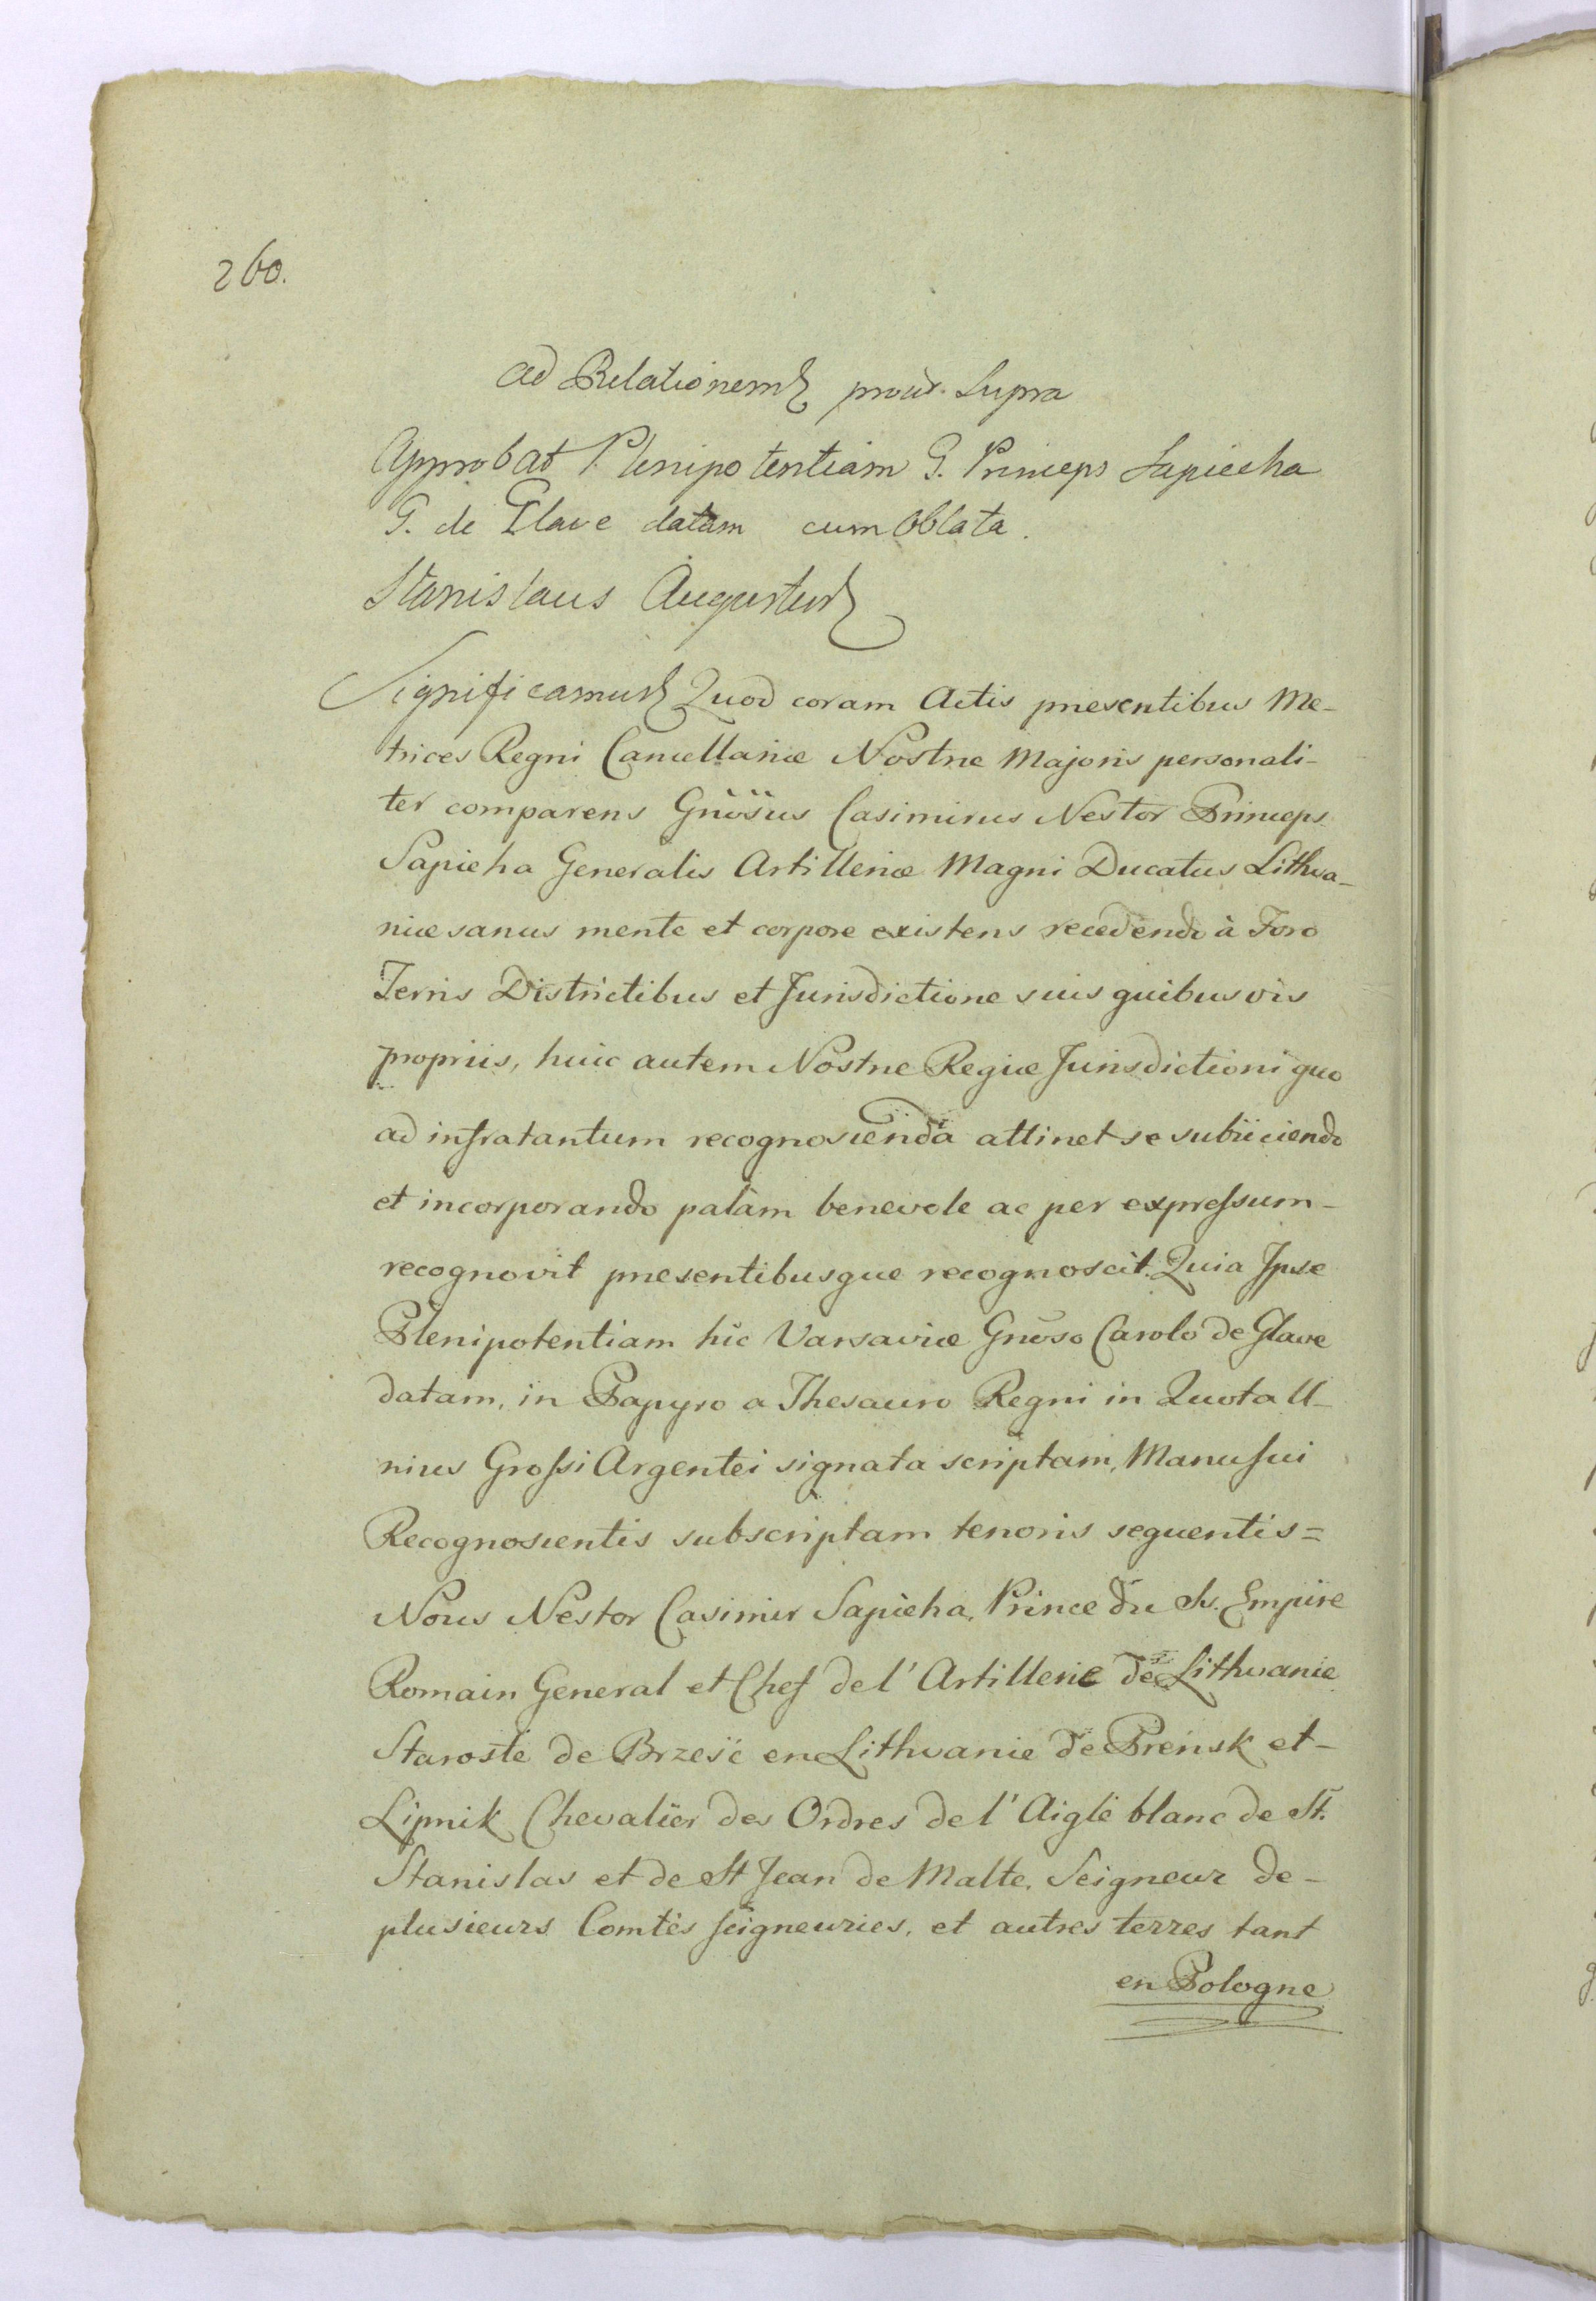 260.
ad Relationem prout Supra
Approbat Plenipotentiam G. Princeps Sapieha
G. de Glave datam cum Oblata.
Stanislaus Augustus
Significamus Quod coram Actis præsentibus Me-
trices Regni Cancellariæ Nostræ Majoris personali-
ter comparens Gnösus Casimirus Nestor Princeps
Sapieha Generalis Artilleriæ Magni Ducatus Lithva-
niæ sanus mente et corpore existens recedendo à Foro
Terris Districtibus et Jurisdictione suis quibusvis
propriis, huic autem Nostræ Regiæ Jurisdictioni quo
ad infratantum recognoscenda attinet se subiiciendo
et incorporando palàm benevole ac per expressum-
recognovit præsentibusque recognoscit. Quia Ipse
Plenipotentiam hic Varsaviæ Gnöso Carolo de Glave
datam, in Papyro a Thesauro Regni in Quota U-
nius Grossi Argentei signata scriptam, Manu sui
Recognoscentis subscriptam tenoris sequentis=
Nous Nestor Casimir Sapieha, Prince du St. Empire
Romain General et Chef de l'Artillerie de Lithvanie
Staroste de Brześć en Lithvanie de Preńsk et-
Lipnik Chevalier des Ordres de l'Aigle blanc de St.
Stanislas et de St Jean de Malte, Seigneur de-
plusieurs Comtés seigneuries, et autres terres tant
en Pologne